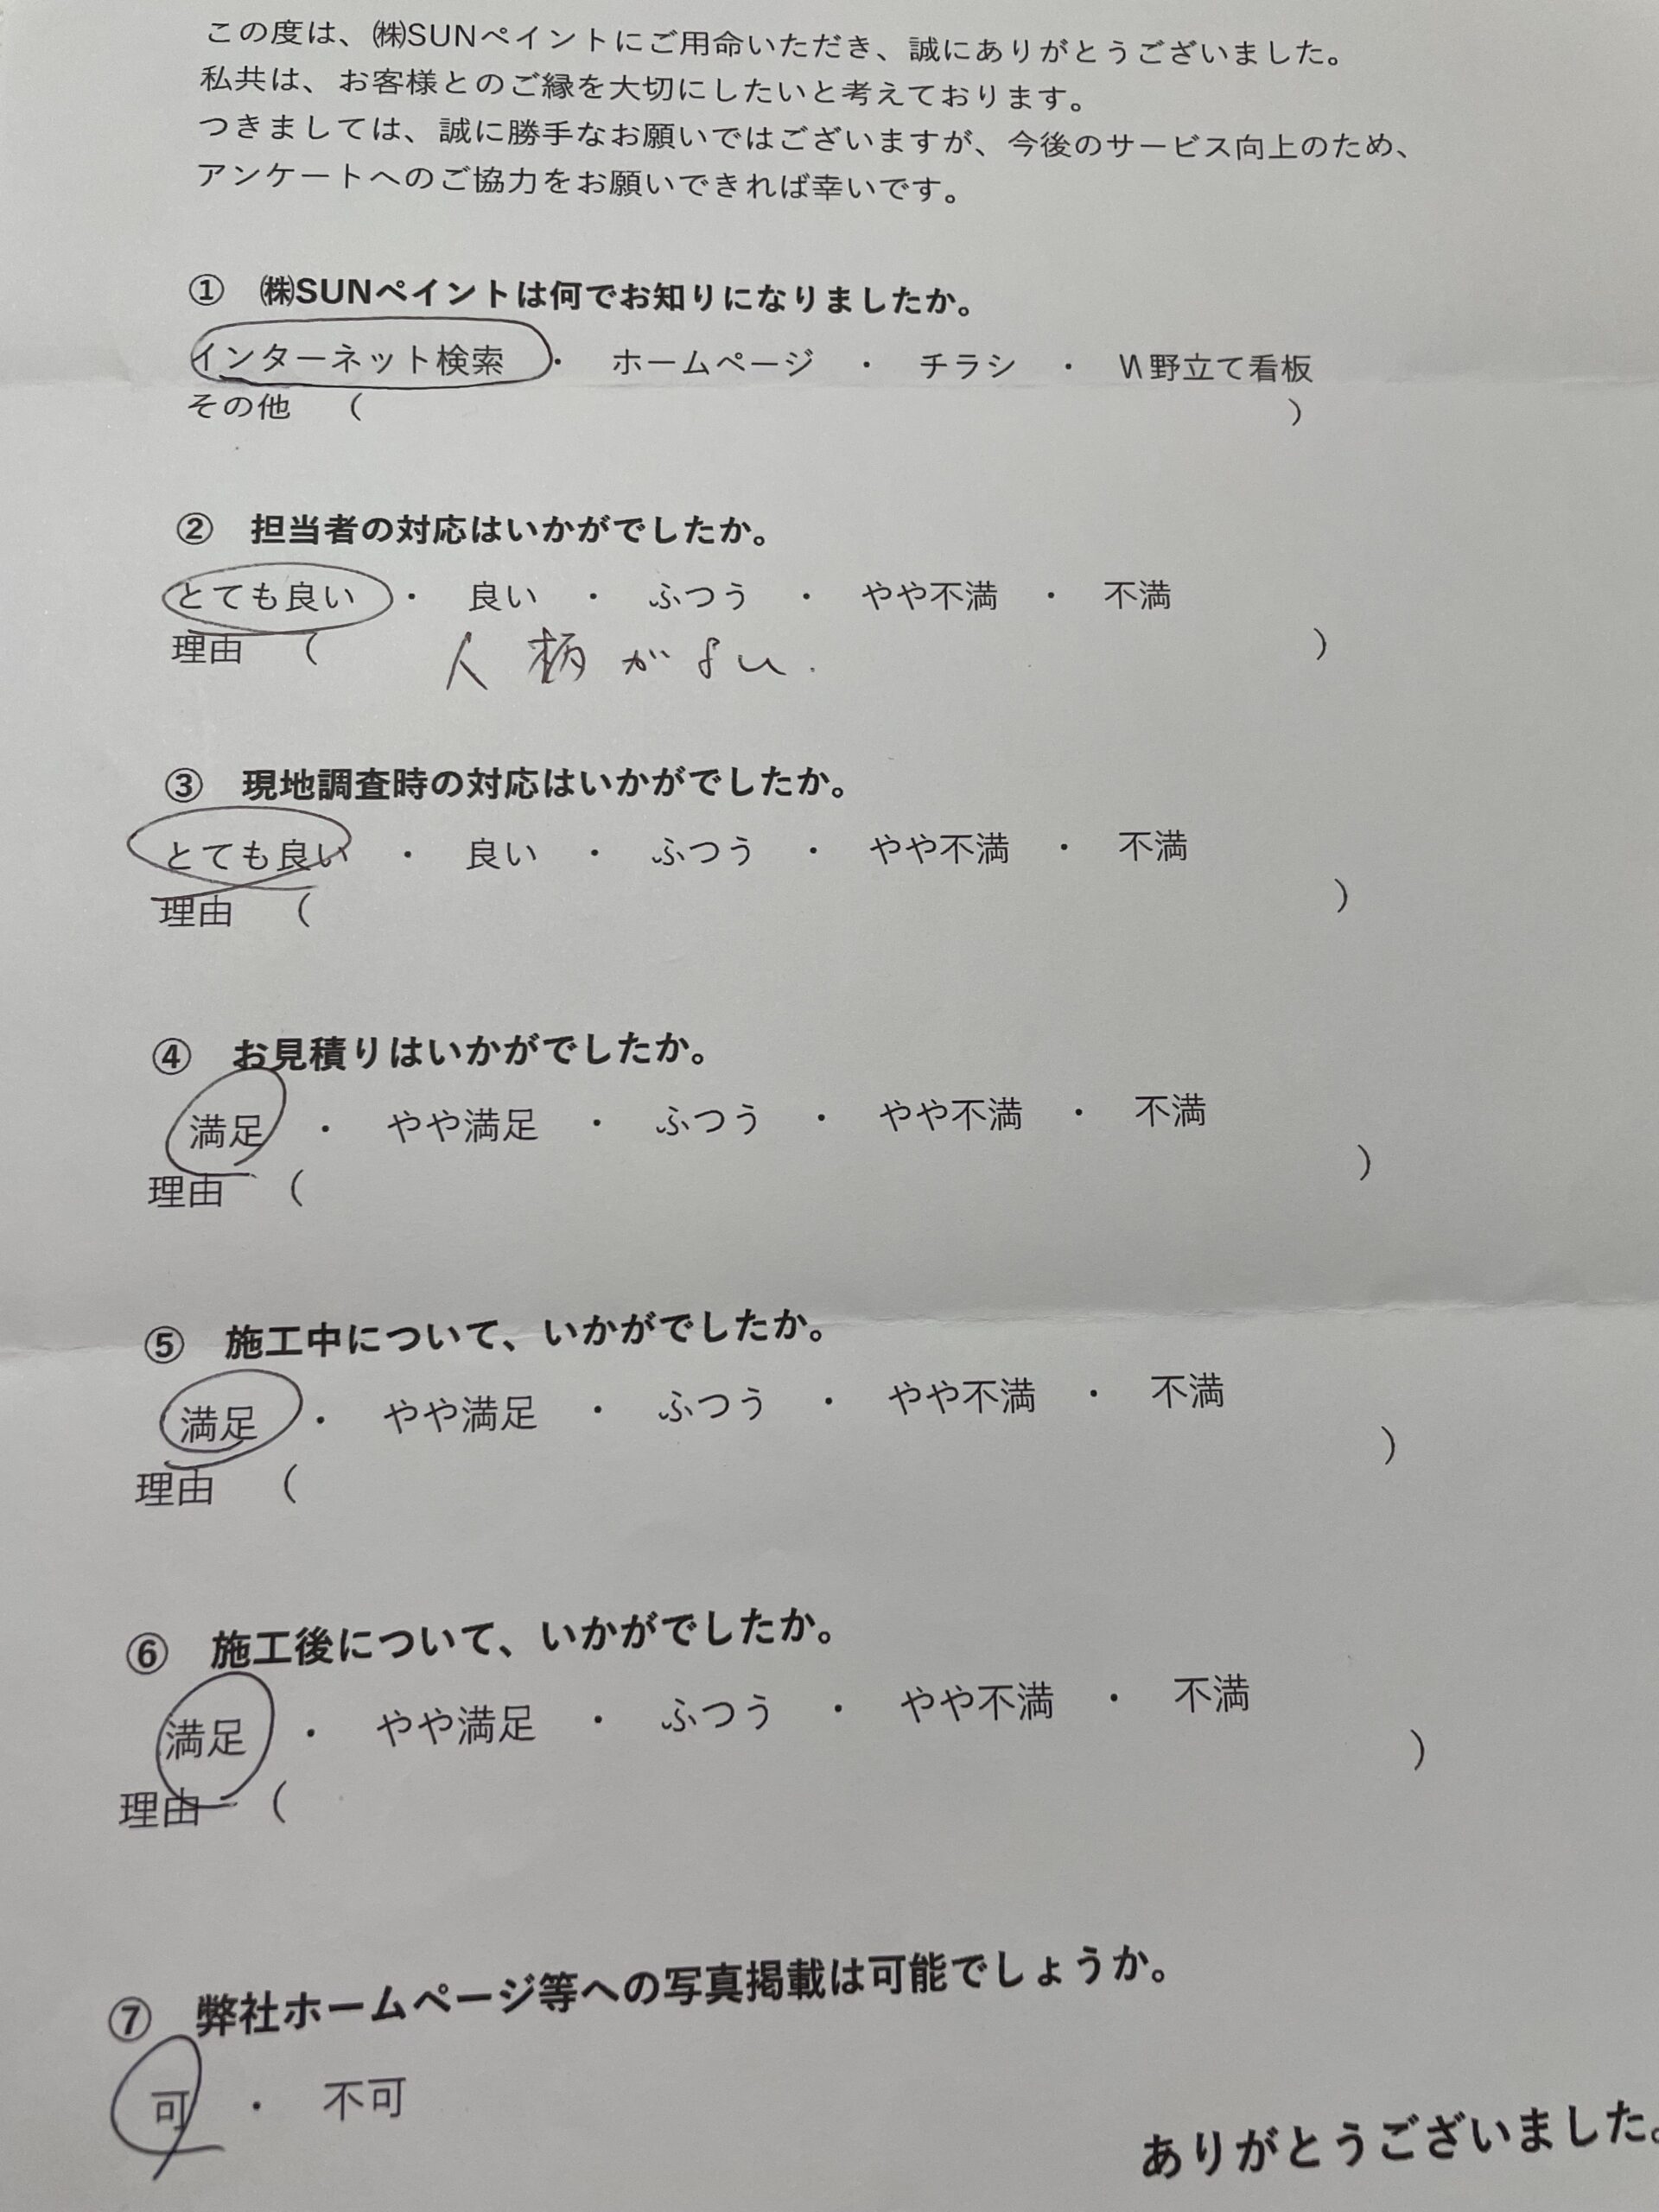 この度は、㈱SUNペイントにご用命いただき、誠にありがとうございました。
私共は、お客様とのご縁を大切にしたいと考えております。
つきましては、誠に勝手なお願いではございますが、今後のサービス向上のため、
アンケートへのご協力をお願いできれば幸いです。
① ㈱SUNペイントは何でお知りになりましたか。
インターネット検索 ・ ホームページ ・ チラシ ・ 野立て看板
その他 ( )
② 担当者の対応はいかがでしたか。
とても良い ・ 良い ・ ふつう ・ やや不満 ・ 不満
理由 ( 人柄がよい. )
③ 現地調査時の対応はいかがでしたか。
とても良い ・ 良い ・ ふつう ・ やや不満 ・ 不満
理由 ( )
④ お見積りはいかがでしたか。
満足 ・ やや満足 ・ ふつう ・ やや不満 ・ 不満
理由 ( )
⑤ 施工中について、いかがでしたか。
満足 ・ やや満足 ・ ふつう ・ やや不満 ・ 不満
理由 ( )
⑥ 施工後について、いかがでしたか。
満足 ・ やや満足 ・ ふつう ・ やや不満 ・ 不満
理由 ( )
⑦ 弊社ホームページ等への写真掲載は可能でしょうか。
可 ・ 不可
ありがとうございました。